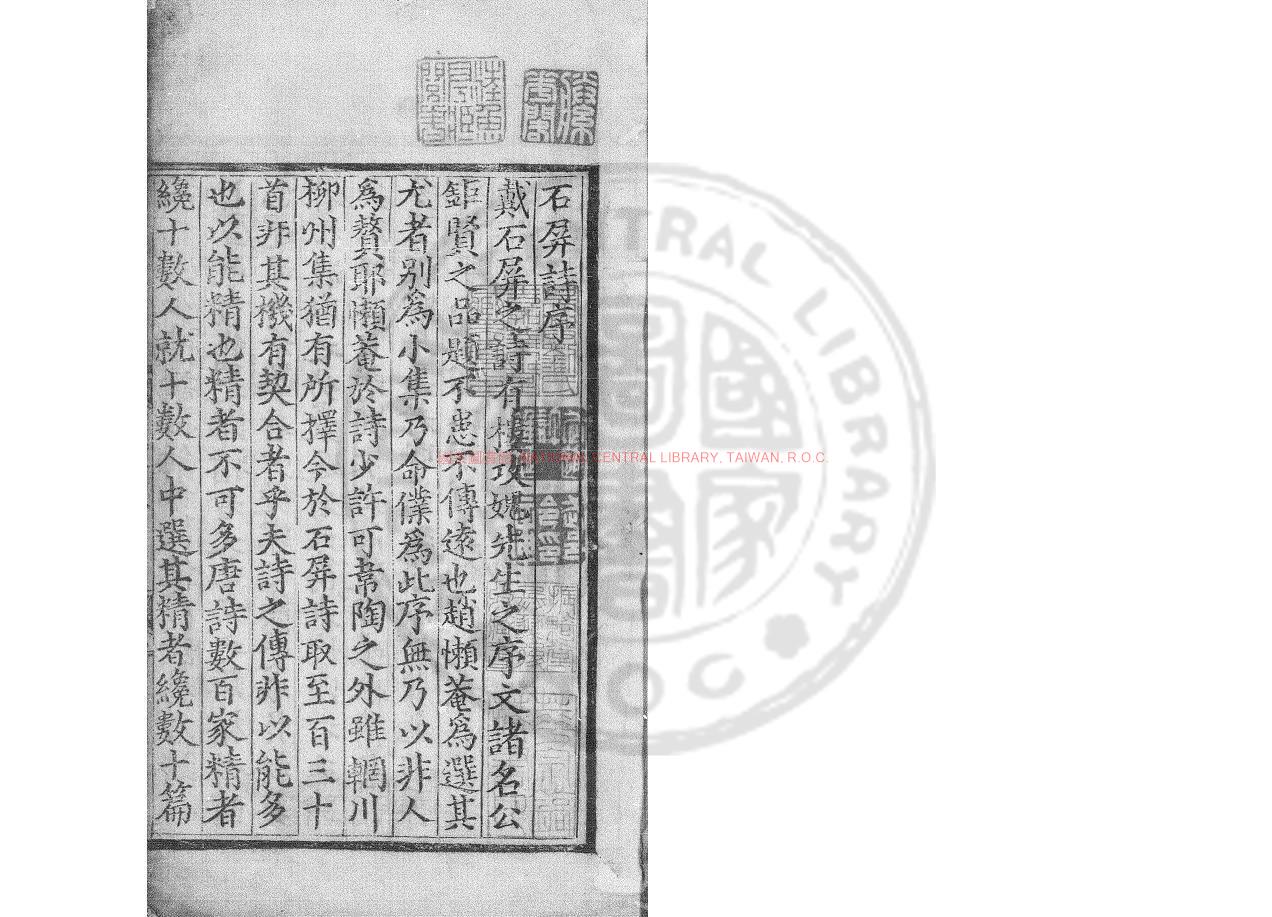 石屏詩序
戴石屏之詩有樓攻媿先生之序文諸名公
鉅賢之品題不患不傳遠也趙懶菴爲選其
尤者别爲小集乃命僕爲此序無乃以非人
爲贅耶懶菴於詩少許可韋陶之外雖輞川
柳州集猶有所擇今於石屏詩取至百三十
首非其機有契合者乎夫詩之傳非以能多
也以能精也精者不可多唐詩數百家精者
纔十數人就十數人中選其精者纔數十篇
NATIONAL CENTRAL LIBRARY, TAIWAN, R.O.C.